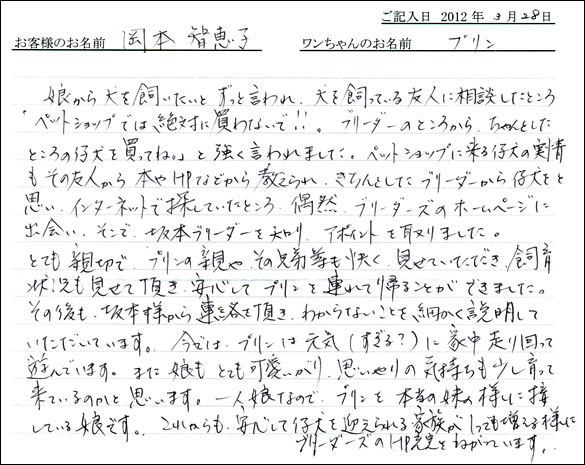 ご記入日 2012年 3月28日
お客様のお名前 岡本 智恵子 ワンちゃんのお名前 プリン
娘から犬を飼いたいと ずっと言われ、犬を飼っている友人に相談したところ
「ペットショップでは絶対に買わないで!!。ブリーダーのところから、ちゃんとした
ところの仔犬を買ってね。」と強く言われました。ペットショップに来る仔犬の実情
もその友人から 本やHPなどから教えられ、きちんとしたブリーダーから仔犬をと
思い、インターネットで探していたところ、偶然、ブリーダーズのホームページに
出会い、そこで、坂本ブリーダーを知り、アポイントを取りました。
とても親切で、プリンの親や その兄弟等も快く、見せていただき、飼育
状況も見せて頂き、安心して プリンを連れて帰ることができました。
その後も、坂本様から連絡を頂き、わからないことを細かく説明して
いただいています。今では、プリンは元気(すぎる?)に家中走り回って
遊んでいます。また娘もとても可愛いがり、思いやりの気持ちも少し育って
来ているのかと思います。一人娘なので、プリンを本当の妹の様に接
している娘です。これからも、安心して仔犬を迎えられる家族が1つでも増える様に
ブリーダーズのHP をねがっています。